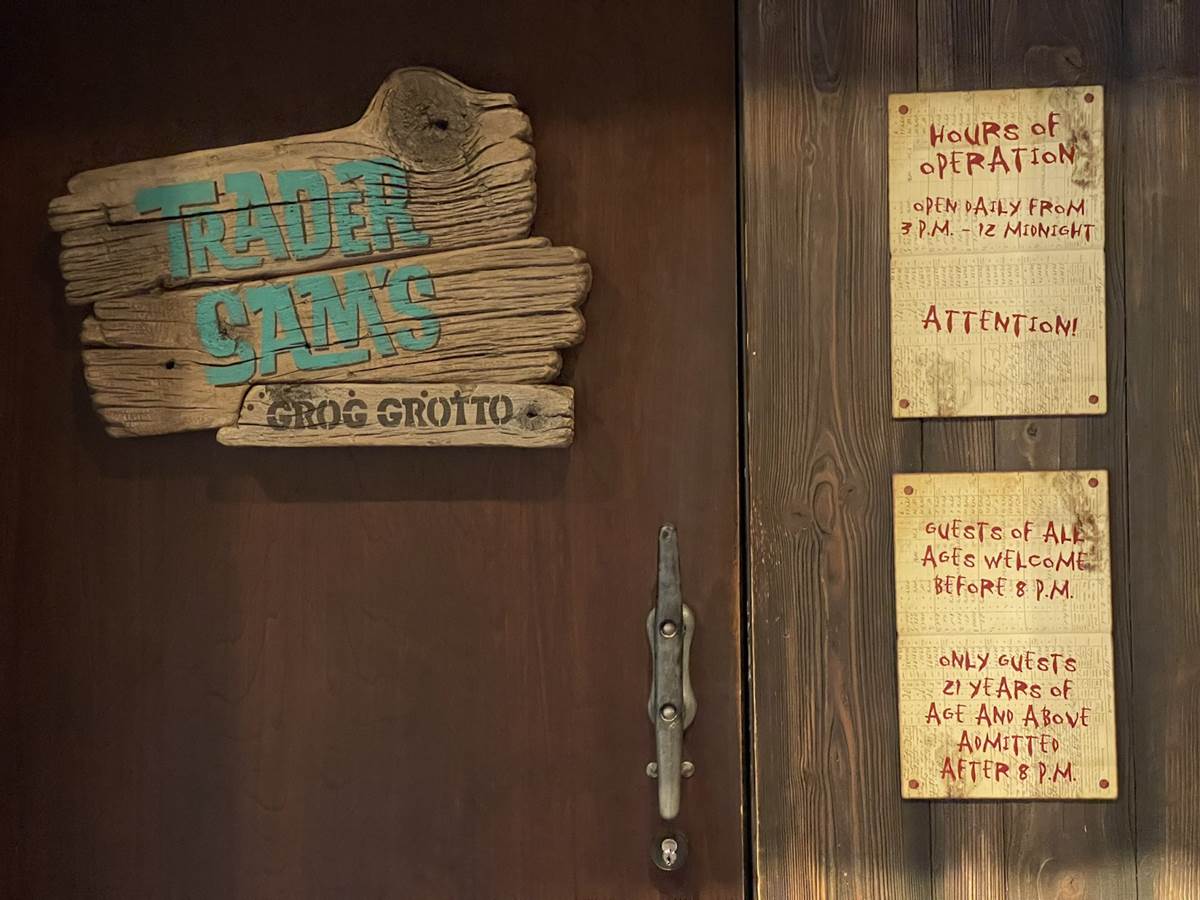 TRADER
SAM'S
GROG GROTTO
HOURS OF
OPERATION
OPEN DAILY FROM
3 P.M. - 12 MIDNIGHT
ATTENTION!
GUESTS OF ALL
AGES WELCOME
BEFORE 8 P.M.
ONLY GUESTS
21 YEARS OF
AGE AND ABOVE
ADMITTED
AFTER 8 P.M.